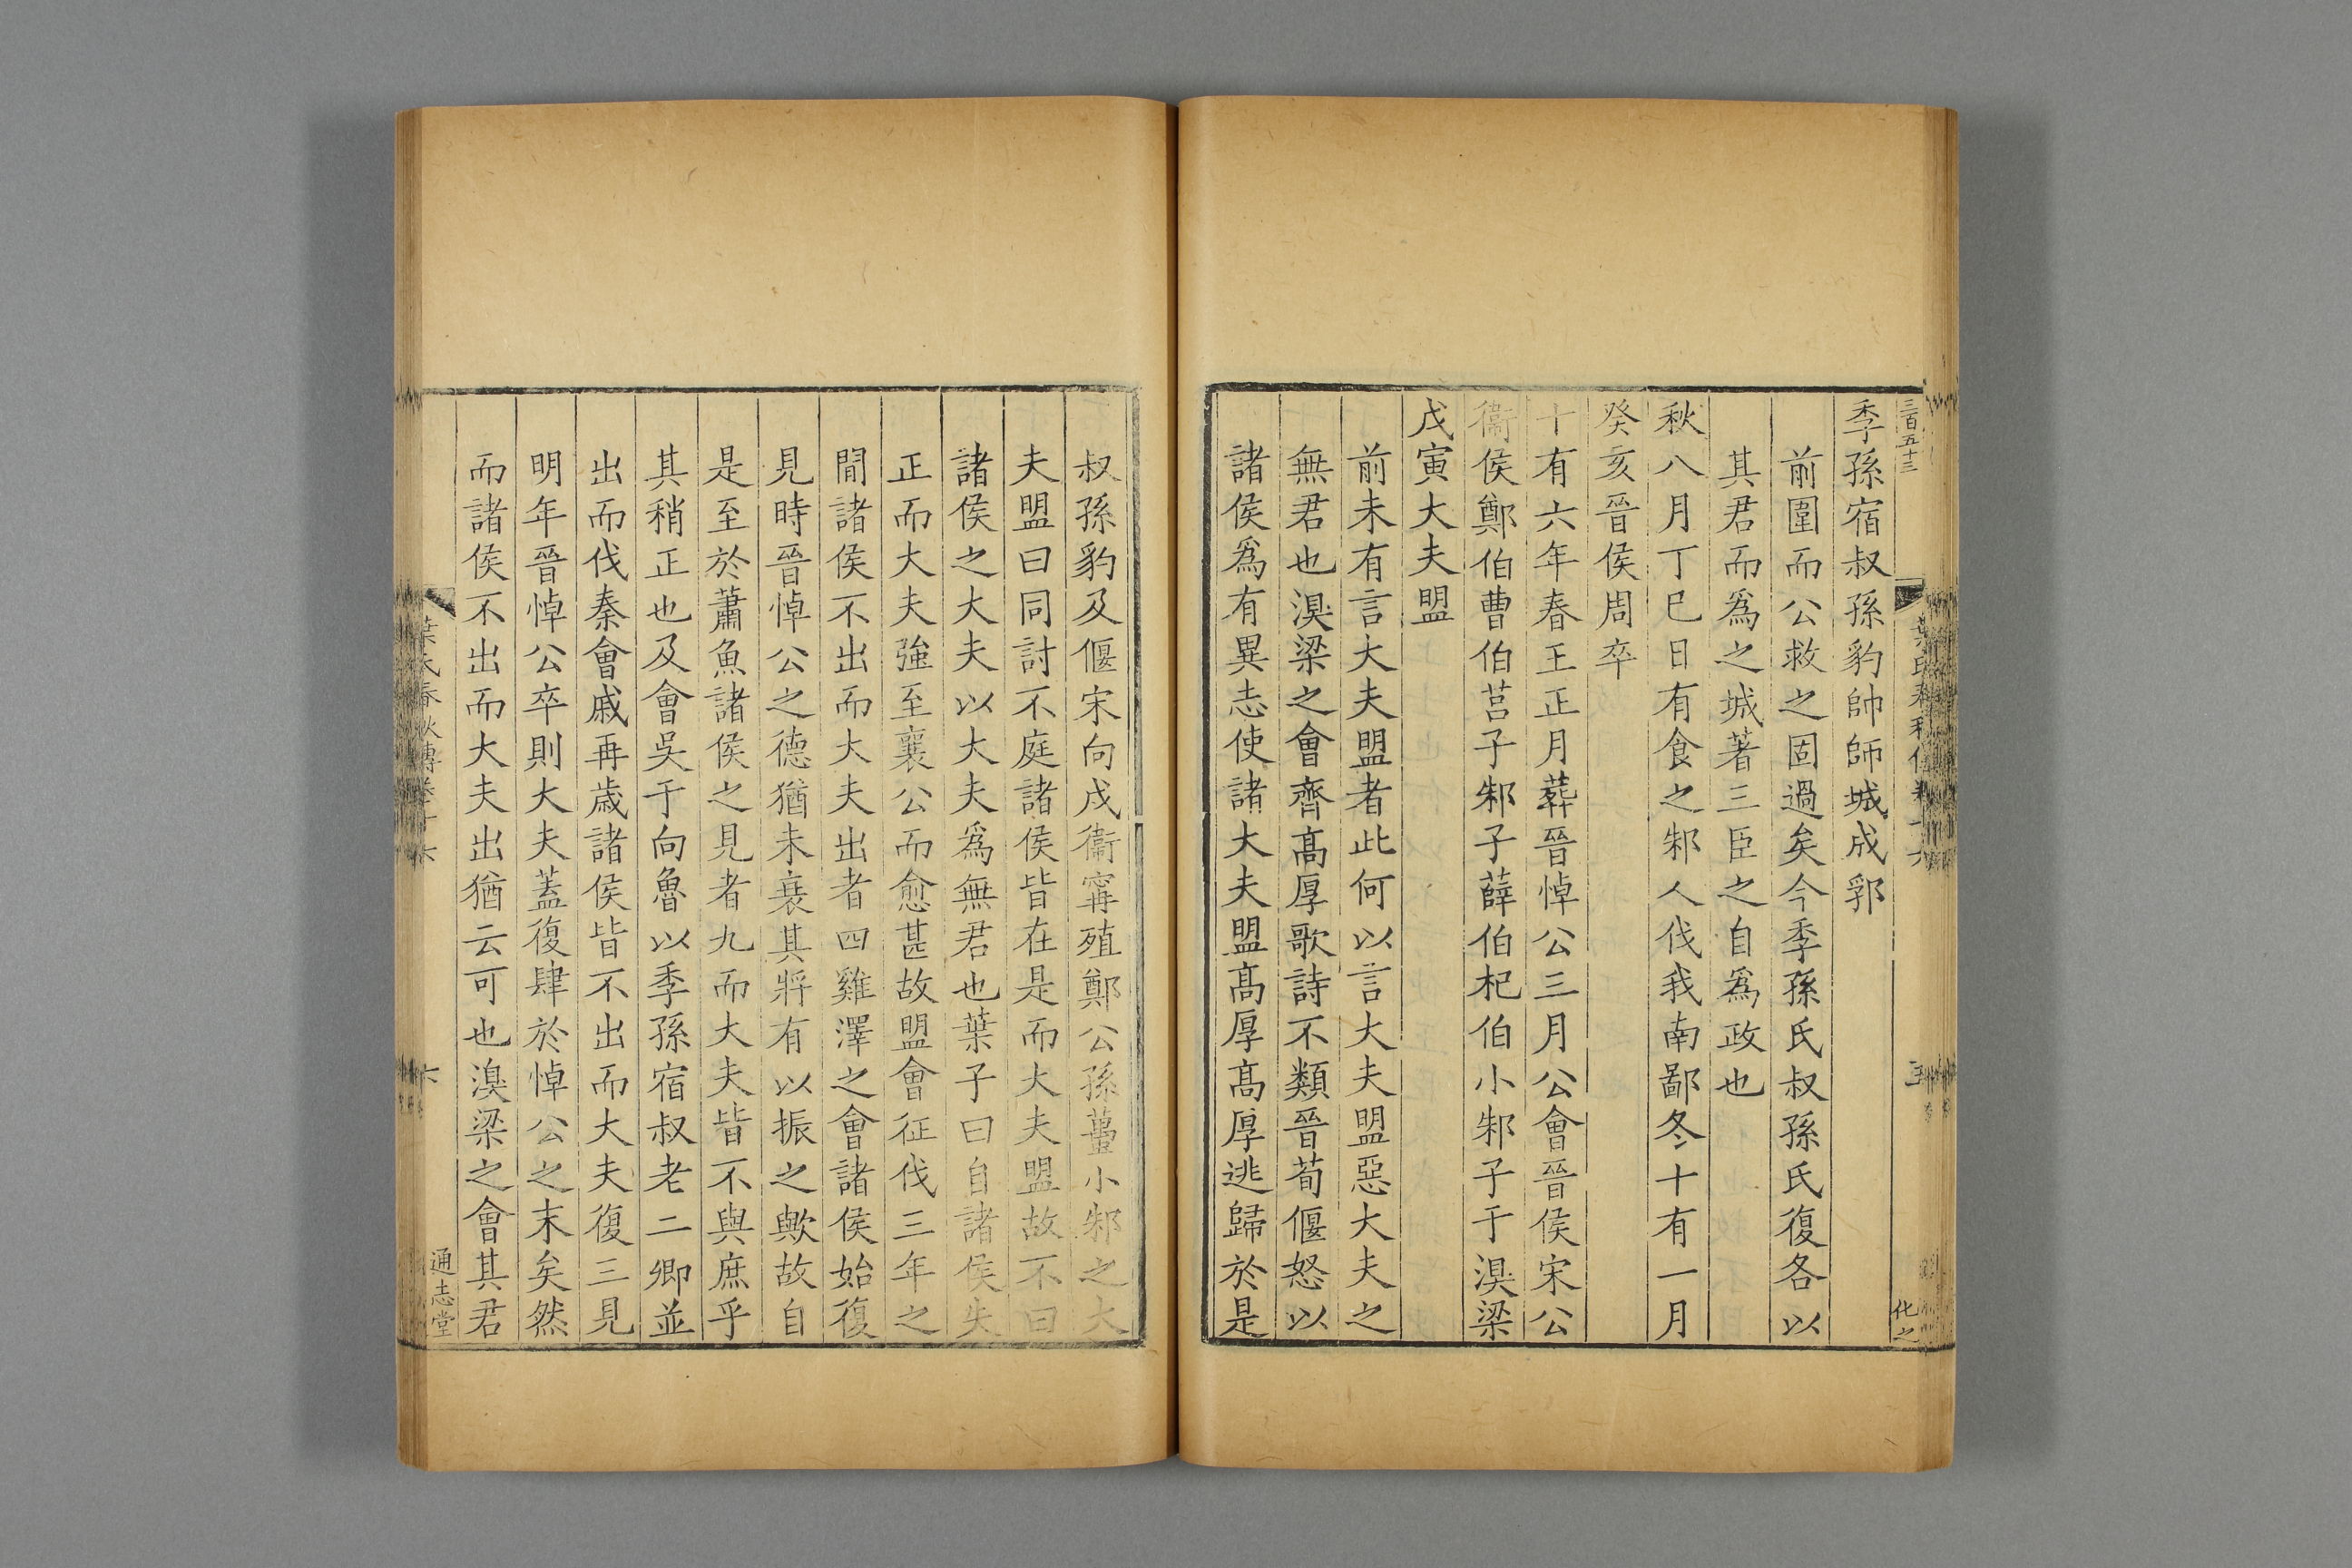 三百五十三
季孫宿叔孫豹帥師城成郛
前圍而公救之固過矣今季孫氏叔孫氏復各以
其君而爲之城著三臣之自爲政也
秋八月丁巳日有食之邾人伐我南鄙冬十有一月
癸亥晉侯周卒
十有六年春王正月葬晉悼公三月公會晉侯宋公
衞侯鄭伯曹伯莒子邾子薛伯杞伯小邾子于湨梁
戊寅大夫盟
前未有言大夫盟者此何以言大夫盟惡大夫之
無君也湨梁之會齊髙厚歌詩不類晉荀偃怒以
諸侯爲有異志使諸大夫盟髙厚髙厚逃歸於是
叔孫豹及偃宋向戌衞甯殖鄭公孫蠆小邾之大
夫盟曰同討不庭諸侯皆在是而大夫盟故不曰
諸侯之大夫以大夫爲無君也葉子曰自諸侯失
正而大夫強至襄公而愈甚故盟會征伐三年之
間諸侯不出而大夫出者四雞澤之會諸侯始復
見時晉悼公之德猶未衰其將有以振之歟故自
是至於蕭魚諸侯之見者九而大夫皆不與庶乎
其稍正也及會吳于向魯以季孫宿叔老二卿並
出而伐秦會戚再歳諸侯皆不出而大夫復三見
明年晉悼公卒則大夫蓋復肆於悼公之末矣然
而諸侯不出而大夫出猶云可也湨梁之會其君
葉氏春秋傳卷十六
六
通志堂